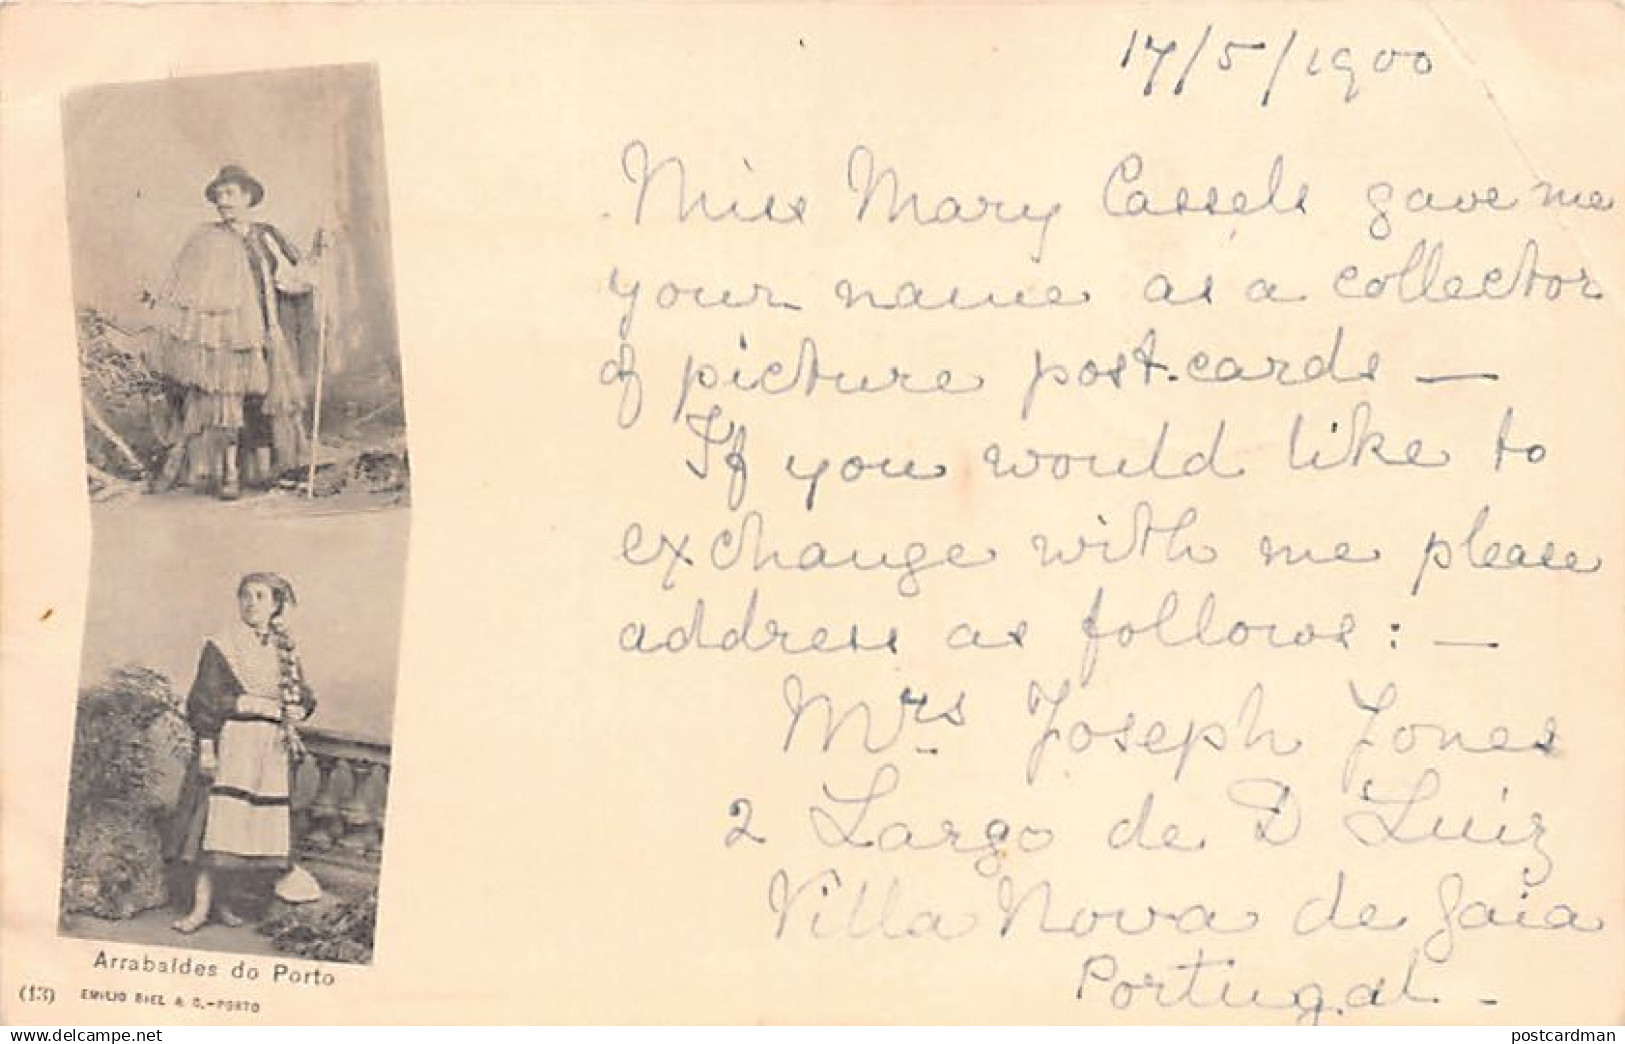 17/5/1900
Miss Mary Cassels gave me
your name as a collector
of picture post-cards —
If you would like to
exchange with me please
address as follows: —
Mrs Joseph Jones
2 Largo de D Luiz
Villa Nova de Gaia
Portugal -
Arrabaldes do Porto
(13) EMILIO BIEL & C.-PORTO
postcardman